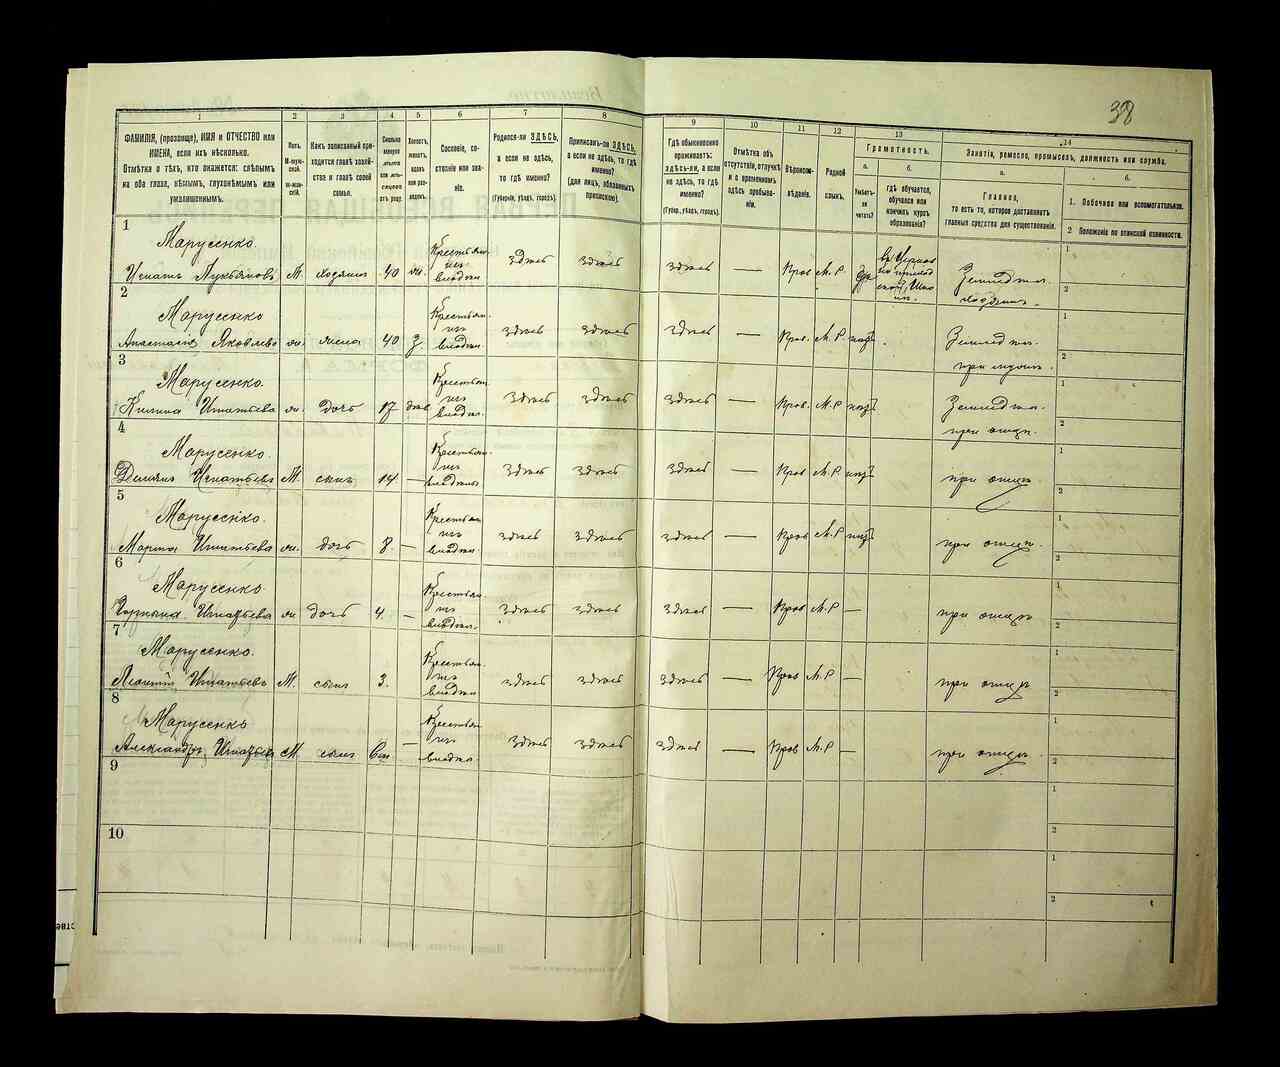 38
1
2
3
4
5
6
7
8
9
10
11
12
13
14
ФАМИЛІЯ, (прозвище), ИМЯ и ОТЧЕСТВО или
ИМЕНА, если ихъ нѣсколько.
Отмѣтка о тѣхъ, кто окажется: слѣпымъ
на оба глаза, нѣмымъ, глухонѣмымъ или
умалишеннымъ.
Полъ.
М-мужской.
Ж-женскій.
Какъ записанный приходится главѣ хозяйства и главѣ своей семьи.
Сколько минуло лѣтъ или мѣсяцевъ отъ роду.
Холостъ, женатъ, вдовъ или разведенъ.
Сословіе, состояніе или званіе.
Родился-ли ЗДѢСЬ,
а если не здѣсь,
то гдѣ именно?
(Губернія, уѣздъ, городъ).
Приписанъ-ли ЗДѢСЬ,
а если не здѣсь, то гдѣ
именно?
(для лицъ, обязанныхъ
припискою).
Гдѣ обыкновенно
проживаетъ:
здѣсь-ли, а если
не здѣсь, то гдѣ
именно?
(Губер., уѣздъ, городъ).
Отмѣтка объ
отсутствіи, отлучкѣ
и о временномъ
здѣсь пребываніи.
Вѣроисповѣданіе.
Родной
языкъ.
Грамотность.
а.
Умѣетъ-ли
читать?
б.
гдѣ обучается,
обучался или
кончилъ курсъ
образованія?
Занятіе, ремесло, промыселъ, должность или служба.
а.
Главное,
то есть то, которое доставляетъ
главныя средства для существованія.
б.
1. Побочное или вспомогательное.
2. Положеніе по воинской повинности.
1
Марусенко.
Игнатъ Лукьяновъ М. хозяинъ 40 Крестьян. изъ владѣл. здѣсь здѣсь здѣсь — Прав М.Р Земледѣл. хозяинъ.
2
Марусенко
Анастасія Яковлева ж. жена 40 з. Крестьян. изъ владѣл. здѣсь здѣсь здѣсь — Прав. М.Р. Земледѣл. при мужѣ.
3
Марусенко.
Игнатьева ж. дочь 17 Крестьян. изъ владѣл. здѣсь здѣсь здѣсь — Прав. М.Р Земледѣл. при отцѣ.
4
Марусенко.
Демьянъ Игнатьевъ М. сынъ 14 — Крестьян. изъ владѣл. здѣсь здѣсь здѣсь — Прав М.Р при отцѣ
5
Марусенко.
Игнатьева ж. дочь 8. — Крестьян. изъ владѣл. здѣсь здѣсь здѣсь — Прав М.Р при отцѣ.
6
Марусенко.
Игнатьева ж. дочь 4. — Крестьян. изъ владѣл. здѣсь здѣсь здѣсь — Прав М.Р — при отцѣ
7
Марусенко.
Леонтій Игнатьевъ М. сынъ 3. Крестьян. изъ владѣл. здѣсь здѣсь здѣсь — Прав М.Р — при отцѣ
8
Марусенко
Александръ Игнатьевъ М. сынъ — Крестьян. изъ владѣл. здѣсь здѣсь здѣсь — Прав М.Р — при отцѣ.
9
10